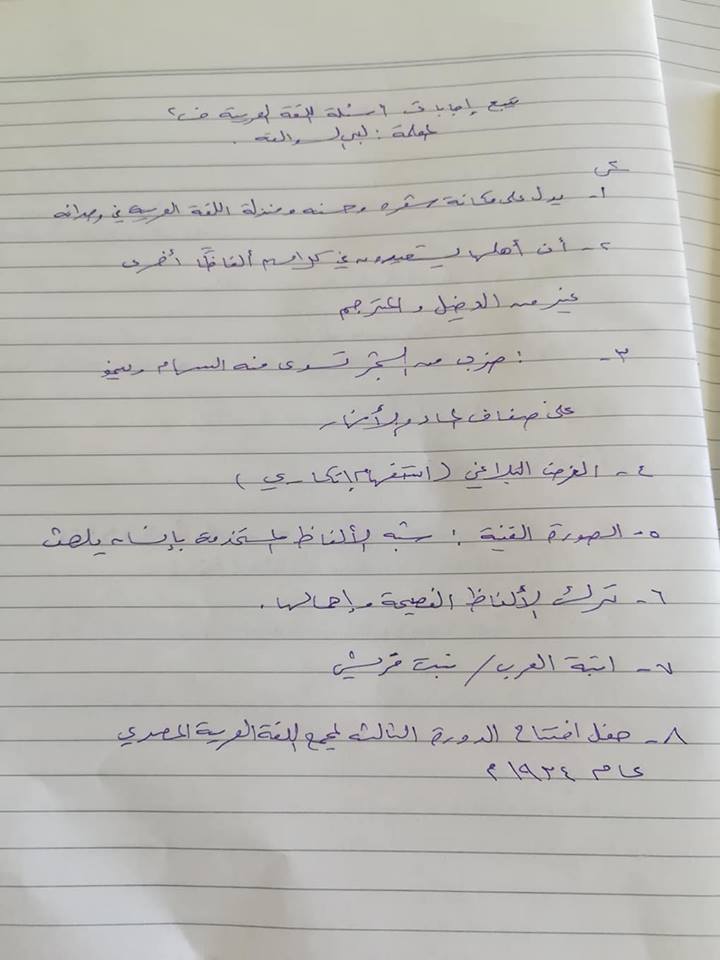 تتبع إجابات أسئلة اللغة العربية ف٢
المعلمة : لبنى السوالقة .
س١
١- يدل على مكانة شعره وحسنه ومنزلة اللغة العربية في وجدانه
٢- أن أهلها يستعيرون في كلامهم ألفاظًا أخرى
غير من الدخيل والمترجم
٣- : ضرب من الشجر تسوى منه السهام وينمو
على ضفاف الماء والأنهار
٤- الغرض البلاغي (استفهام إنكاري)
٥- الصورة الفنية : شبه الألفاظ المستخدمة بإنسان يلهث
٦- ترك الألفاظ الفصيحة وإهمالها .
٧- ابنة العرب / بنت قريش
٨- حفل افتتاح الدورة الثالثة لمجمع اللغة العربية المصري
عام ١٩٣٤ م